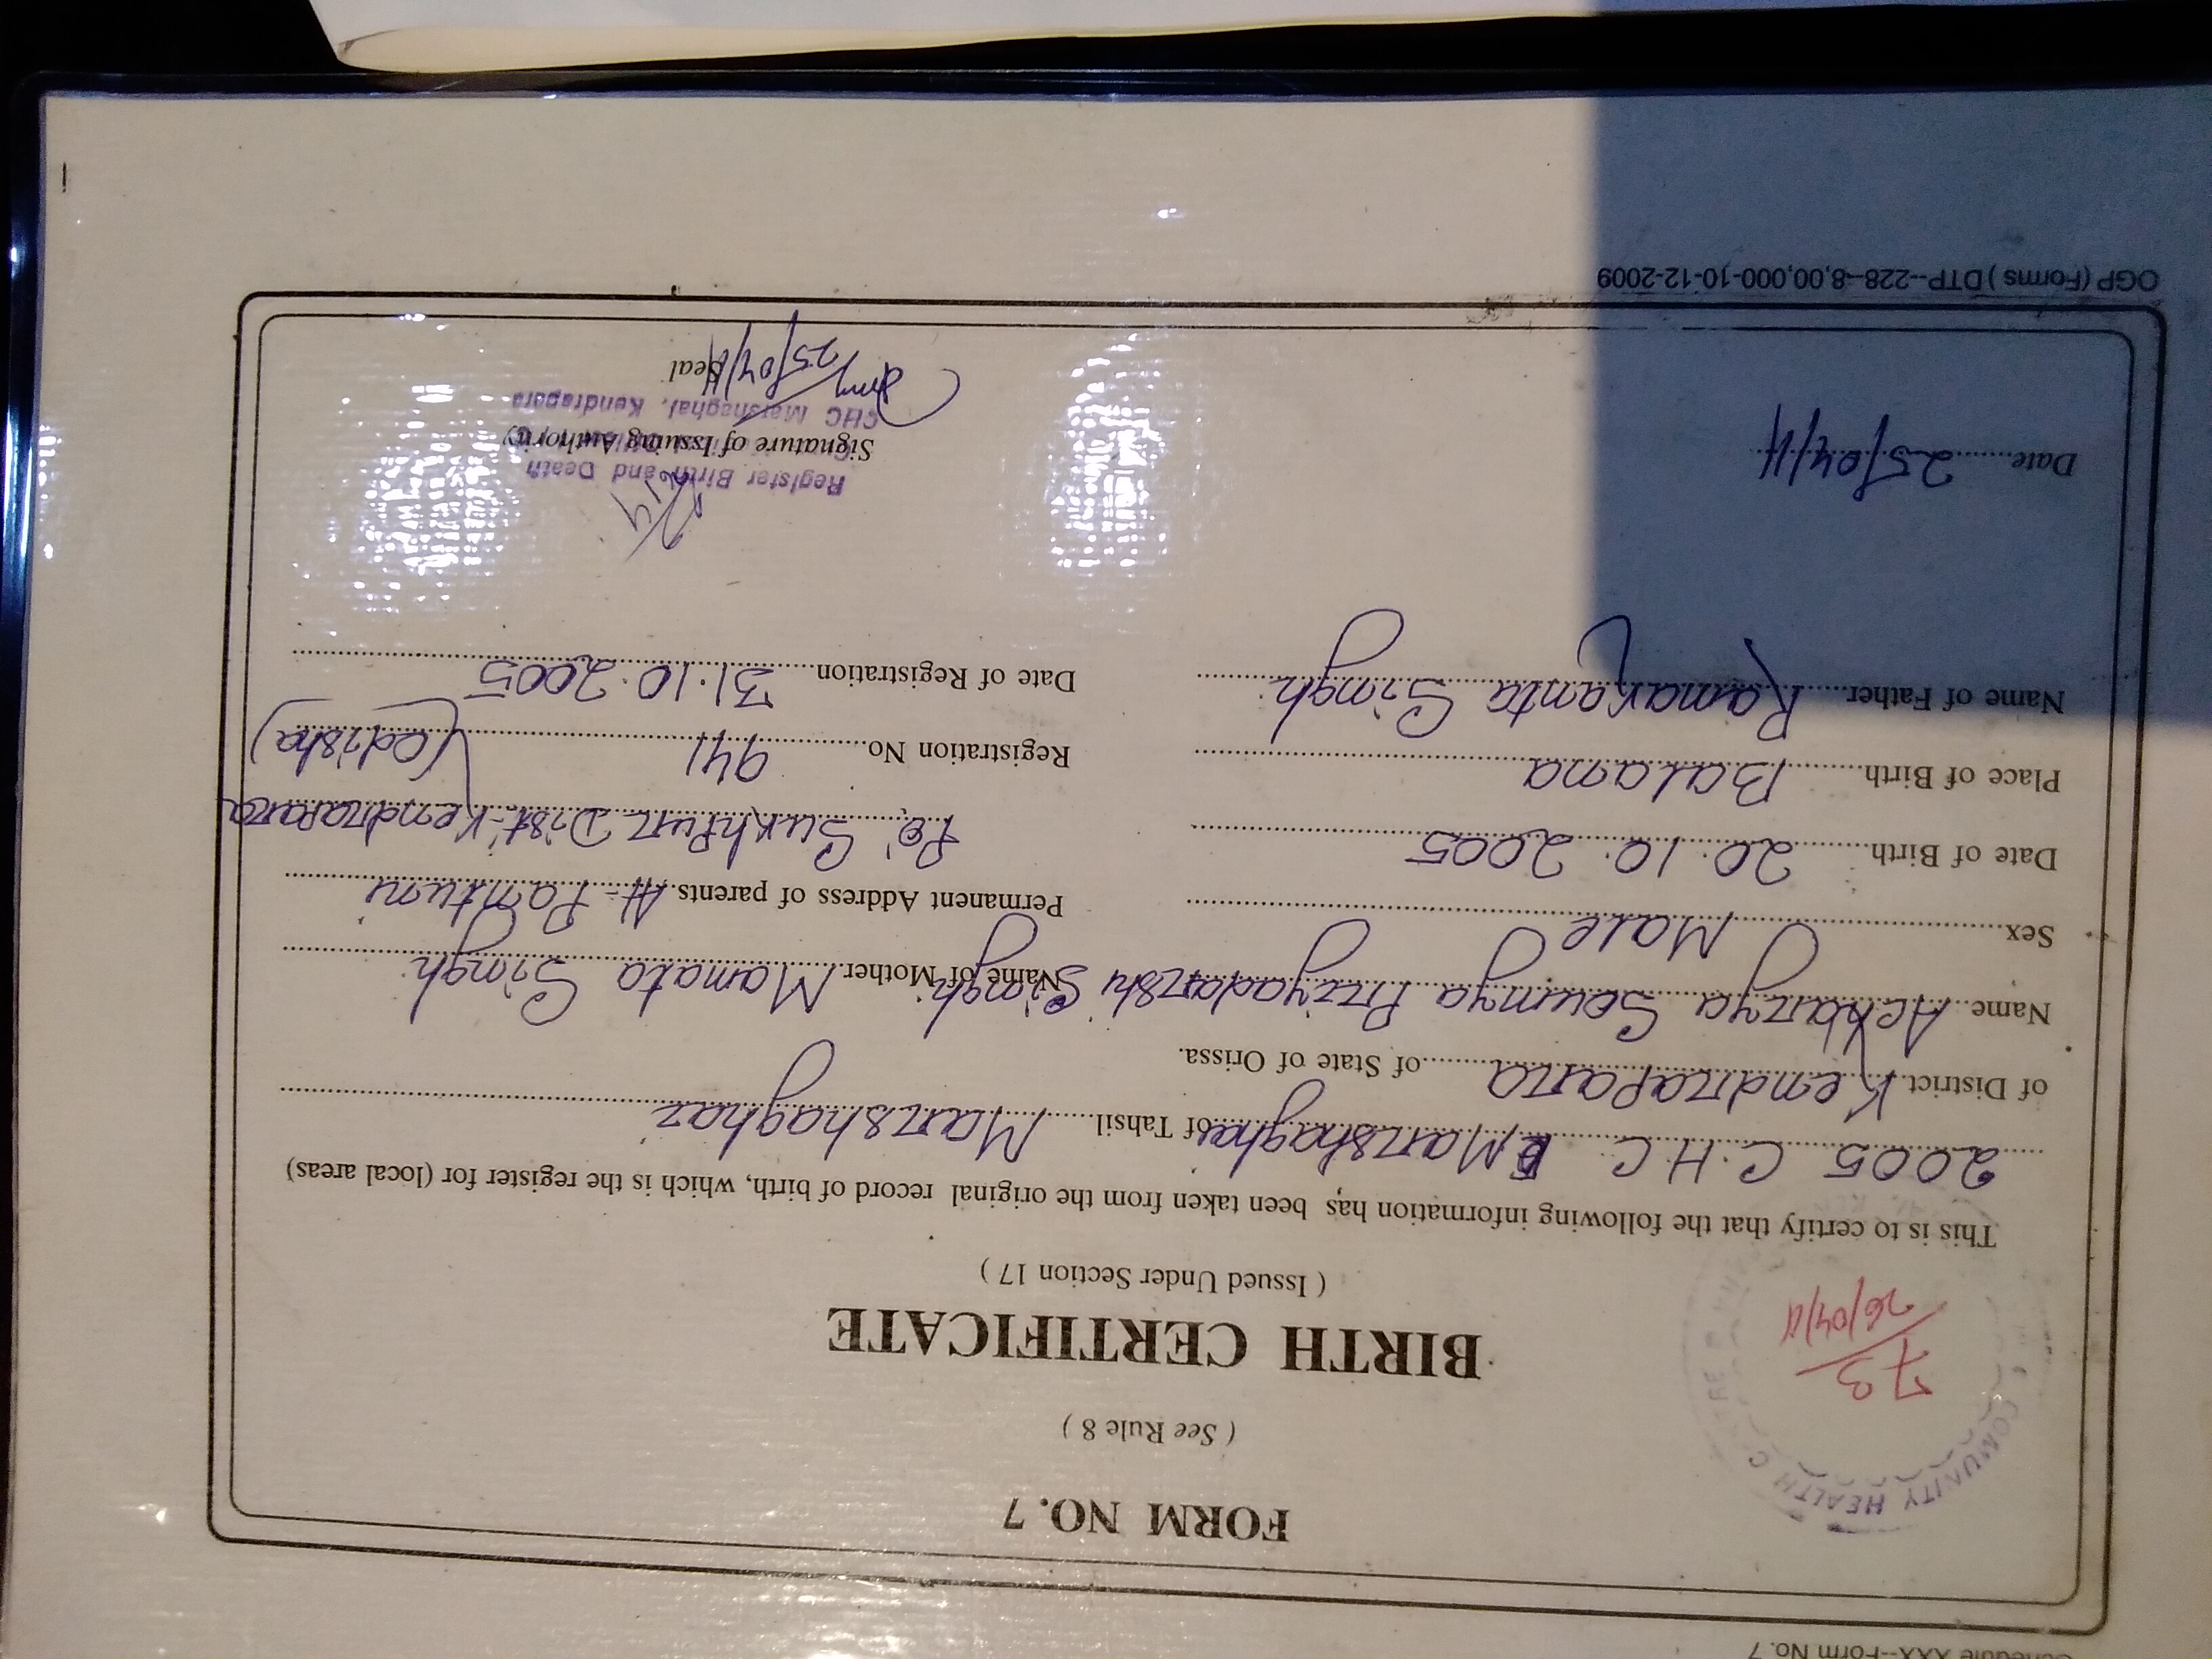 Schedule XXX--Form No. 7
FORM NO. 7
( See Rule 8 )
COMUNITY HEALTH
73
26/04/11
BIRTH CERTIFICATE
( Issued Under Section 17 )
This is to certify that the following information has been taken from the original record of birth, which is the register for (local areas)
2005 C.H.C Marshaghai of Tahsil Marshaghai
of District Kendrapara of State of Orissa.
Name Acharya Soumya Priyadarshi Singh
Name of Mother Mamata Singh
Sex Male
Permanent Address of parents At- Pantuni
Date of Birth 20.10.2005
Po. Sukhpur Dist- Kendrapara
Place of Birth Balana
Registration No 941 (Odisha)
Name of Father Ramakanta Singh
Date of Registration 31.10.2005
Register Birth and Death
Date 25/04/11
Signature of Issuing Authority
CHC Marshaghai, Kendrapara
Seal
25/04/11
OGP (Forms ) DTP--228--8,00,000-10-12-2009